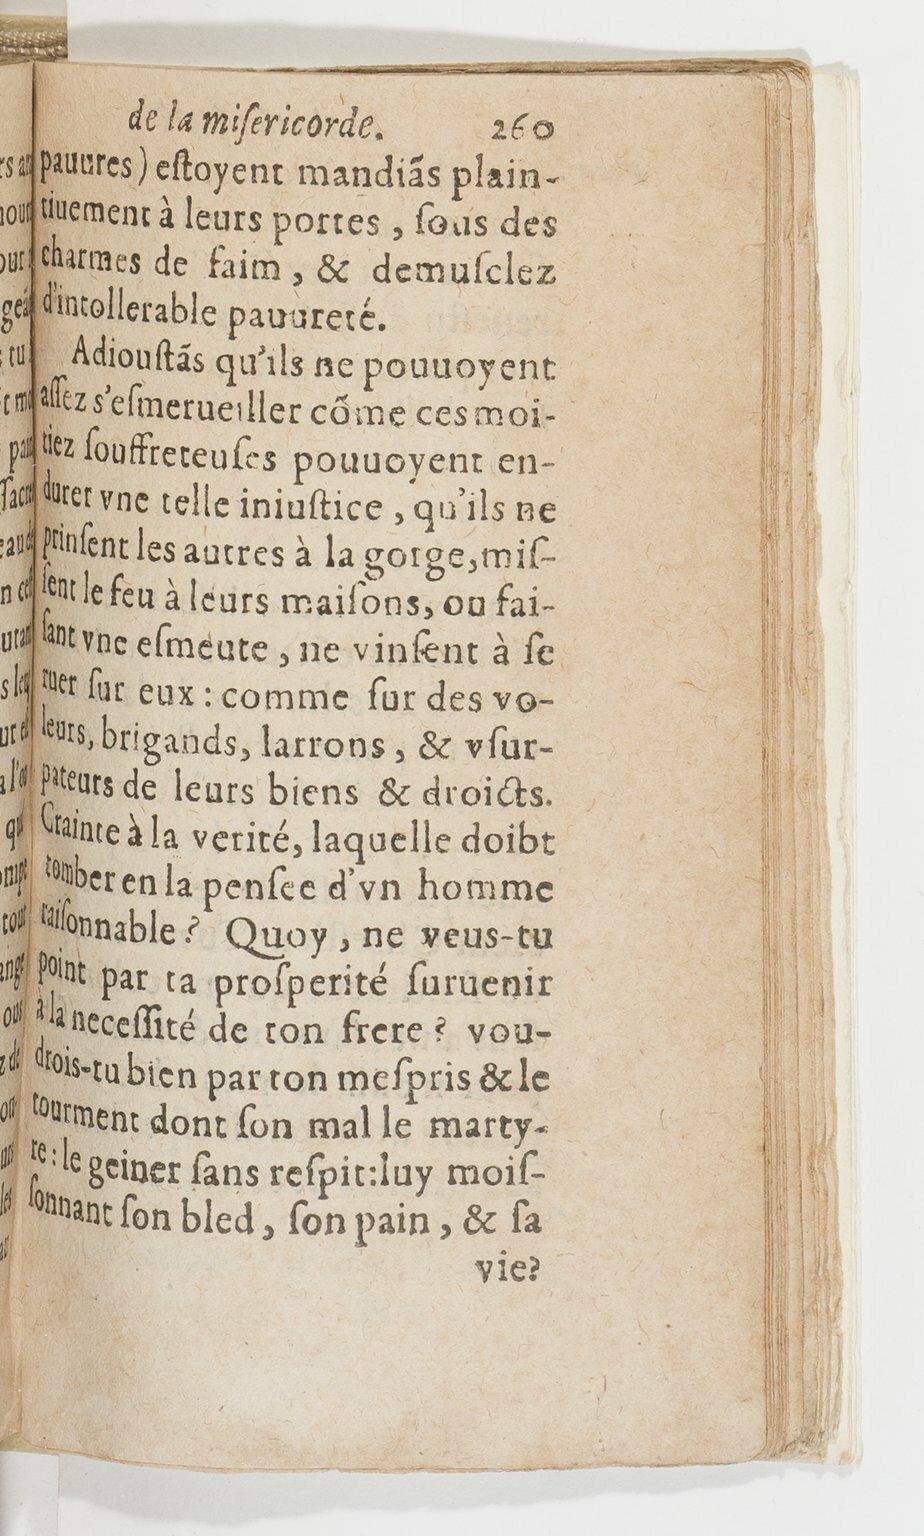 de la miſericorde. 260
pauures) eſtoyent mandiãs plain-
tiuement à leurs portes, ſous des
charmes de faim, & demuſclez
d'intollerable pauureté.
Adiouſtãs qu'ils ne pouuoyent
aſſez s'eſmerueiller cõme ces moi-
tiez ſouffreteuſes pouuoyent en-
durer vne telle iniuſtice, qu'ils ne
prinſent les autres à la gorge, miſ-
ſent le feu à leurs maiſons, ou fai-
ſant vne eſmeute, ne vinſent à ſe
ruer ſur eux: comme ſur des vo-
leurs, brigands, larrons, & vſur-
pateurs de leurs biens & droicts.
Crainte à la verité, laquelle doibt
tomber en la penſee d'vn homme
raiſonnable? Quoy, ne veus-tu
point par ta proſperité ſuruenir
à la neceſſité de ton frere? vou-
drois-tu bien par ton meſpris & le
tourment dont ſon mal le marty-
re: le geiner ſans reſpit: luy moiſ-
ſonnant ſon bled, ſon pain, & ſa
vie?